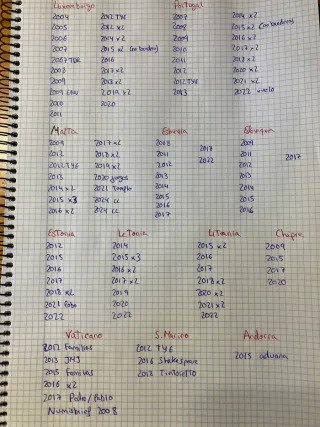 Luxemburgo Portugal
2004 2012 TYE 2007 2014 x2
2005 2012 x2 2008 2015 x2
2006 2014 x2 2009 2016 x2
2007 2015 x2 2010 2017 x2
2007 TDR 2016 2011 2018 x2
2008 2017 x2 2012 2020 x2
2009 2018 x2 2012 TYE 2021 x2
2009 EMU 2019 x2 2013 2022 vuelo
2010 2020
2011
Malta
2009 2017 x2 2008 2017 2009
2012 2018 x2 2011 2022 2011 2017
2012 TYE 2019 x2 2012 2012
2013 2020 juegos 2013 2013
2014 x2 2021 Templo 2014 2014
2015 x3 2024 cc 2015 2015
2016 x2 2024 cc 2016 2016
2017
Estonia Letonia Lituania Chipre
2012 2014 2015 x2 2009
2015 2015 x3 2016 2015
2016 2016 x2 2017 2017
2017 2017 x2 2018 x2 2020
2018 x2 2019 2020 x2
2021 2020 2021 x2
2022 2022 2022
Vaticano S. Marino Andorra
2012 Familias 2012 TYE 2015 aduana
2013 JMJ 2016 Shakespeare
2015 Familias 2018 Tintoretto
2016 x2
2017 Pedro/Pablo
Numisbrief 2008